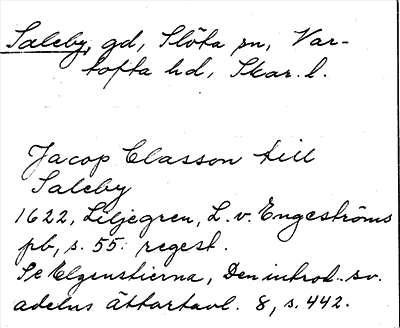 Saleby, gd, Slöta sn, Var-
tofta hd, Skar. l.
Jacop Classon till
Saleby
1622, Liljegren, L. v. Engeströms
pb, s. 55. regest.
Se Elgenstierna, Den introd. sv.
adelns ättartavl. 8, s. 442.